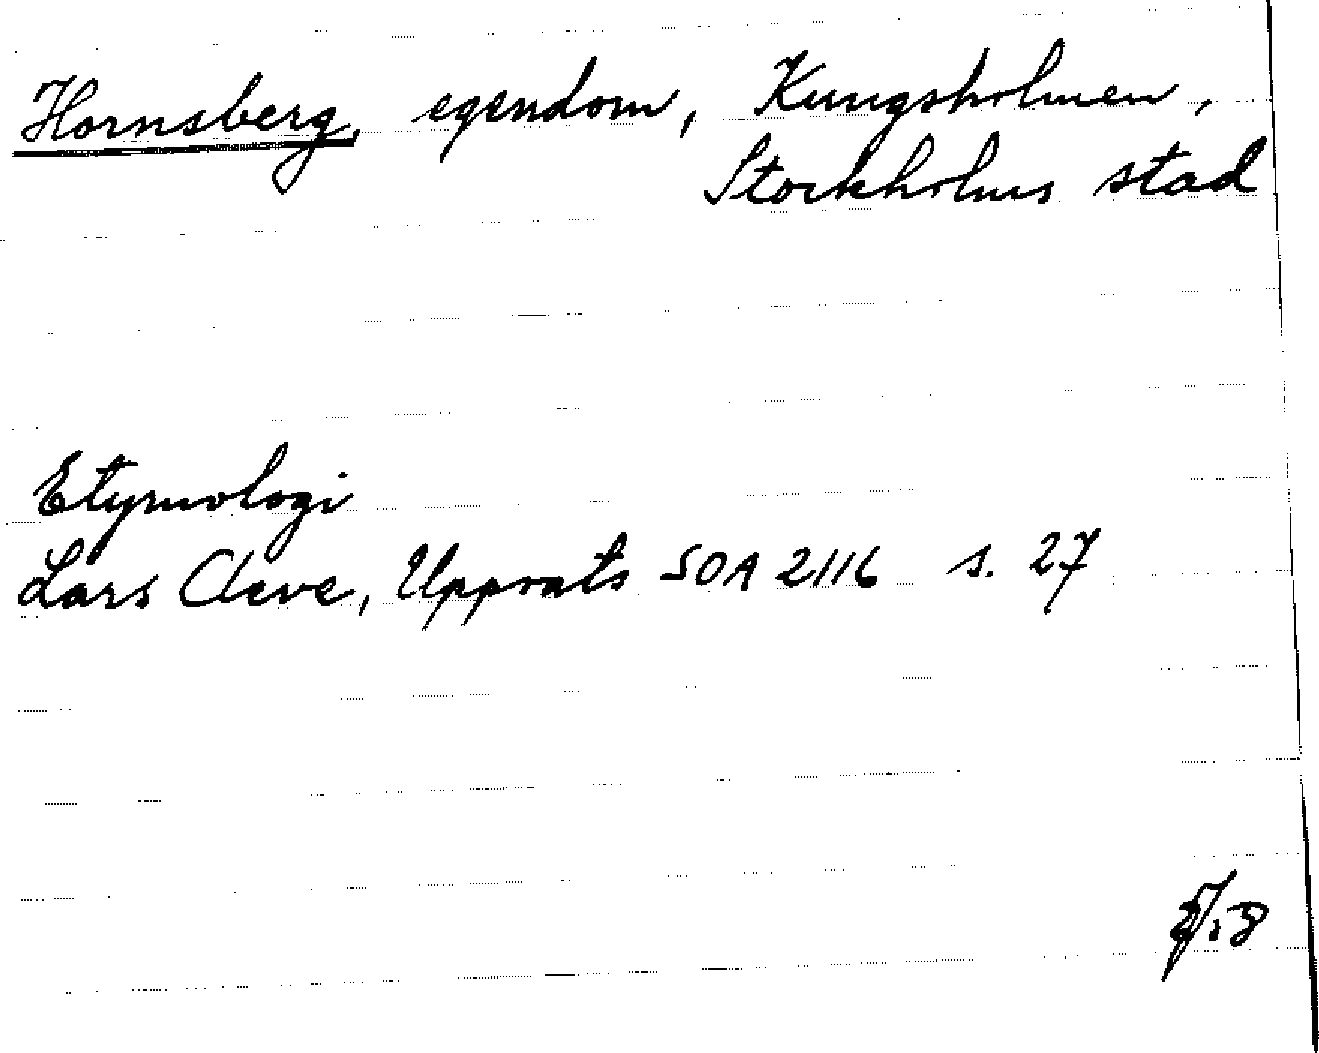 Hornsberg, egendom, Kungsholmen,
Stockholms stad
Etymologi
Lars Cleve, Uppsats SOA 2116 s. 27